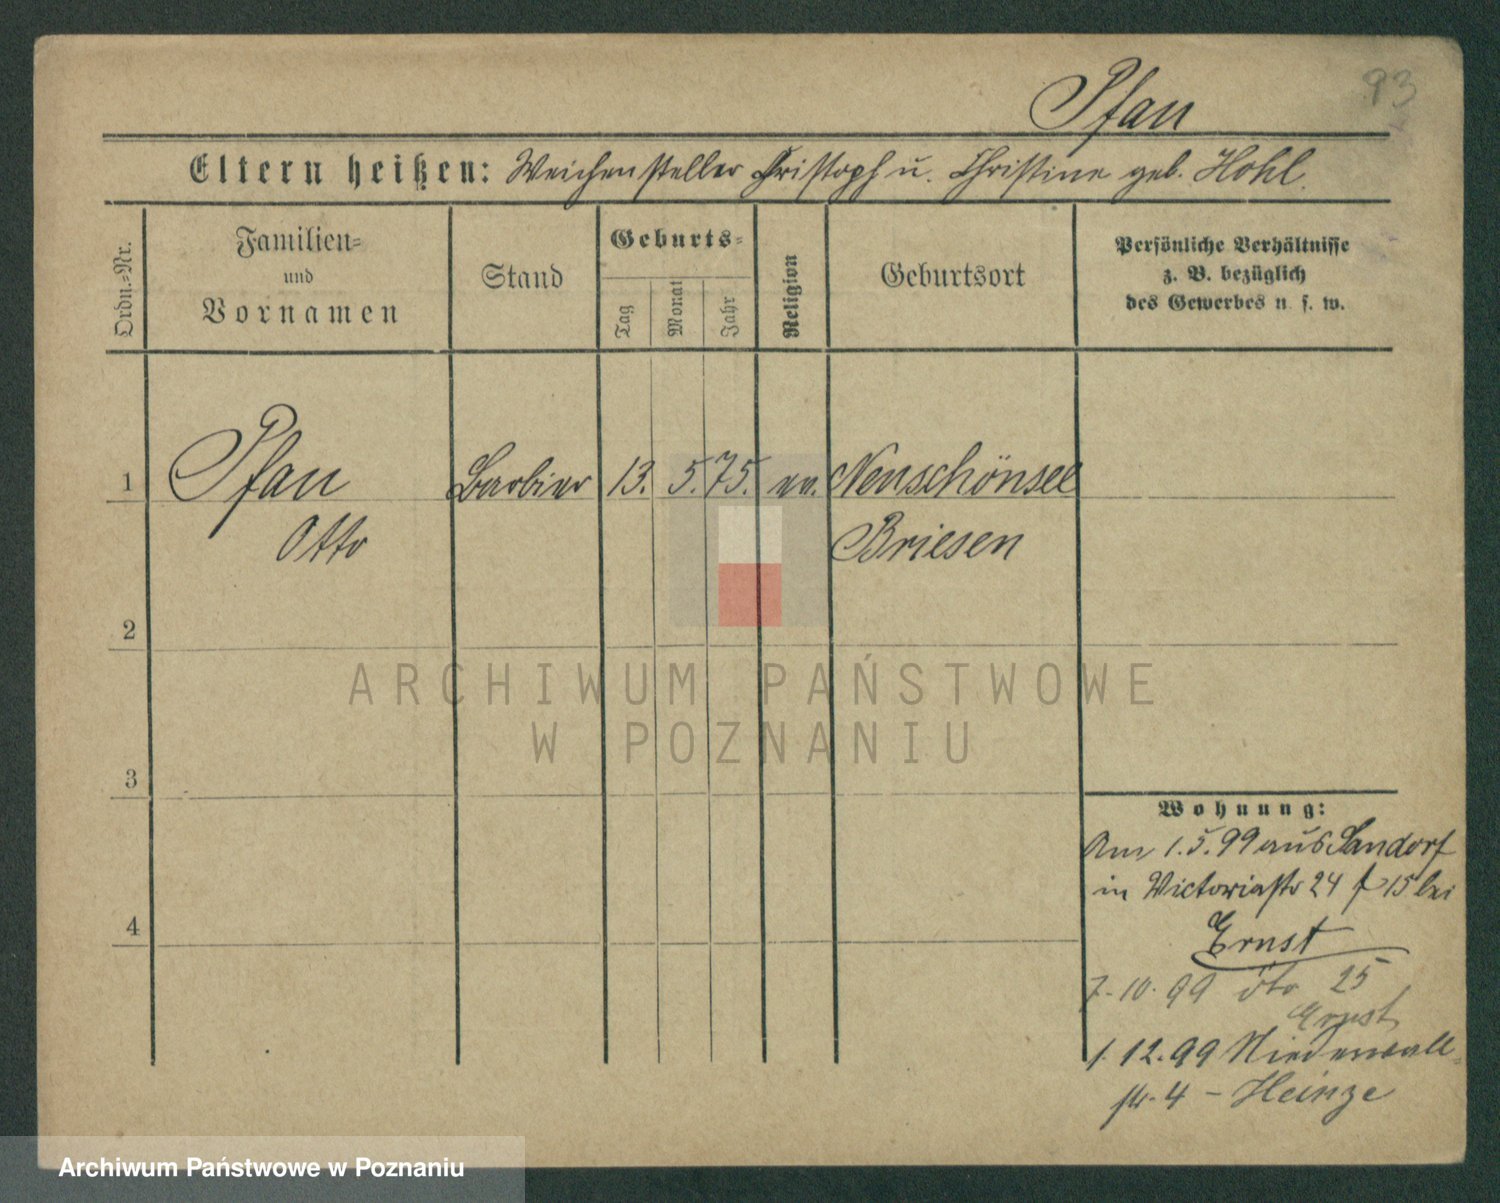 93
Pfau
Eltern heißen: Weichensteller Christoph u. Christine geb. Hohl.
Ordn.=Nr.
Familien=
und
Vornamen
Stand
Geburts=
Tag
Monat
Jahr
Religion
Geburtsort
Persönliche Verhältnisse
z. B. bezüglich
des Gewerbes u. s. w.
1 Pfau Barbier 13. 5. 75. ev. Neuschönsee
Otto Briesen
2
ARCHIWUM PAŃSTWOWE
W POZNANIU
3
4
Wohnung:
Am 1.5.99 aus
in Victoriastr 24 15 bei
Ernst
7.10.99 25
Ernst
1.12.99 Niederwall=
str. 4 – Heinze
Archiwum Państwowe w Poznaniu